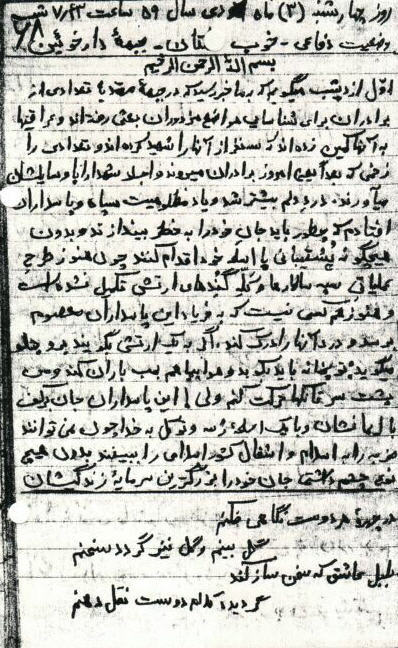 روز چهارشنبه (۳) ماه دی سال ۵۹ ساعت ۷/۲۳ شب
وضعیت دفاعی - خوب - جبههٔ دارخوئین
بسم الله الرحمن الرحیم
اول از دیشب میگویم که بما خبر رسید که در جبههٔ تعدادی از
برادران برای شناسایی مواضع مزدوران بعثی رفته‌اند و عراقیها
به آنها کمین زده‌اند که سه نفر از آنها را شهید کرده‌اند و تعدادی را
زخمی که بعداً یعنی امروز برادران میروند و اجساد شهدا را با وسایلشان
میآورند. درد دلم بیشتر شد و یاد مظلومیت سپاه و پاسداران
افتادم که چطور باید جان خود را به خطر بیندازند و بدون
هیچگونه پشتیبانی با اسلحه خود اقدام کنند چون هنوز طرح
عملیاتی سپه سالارها و کله گنده‌های ارتشی تکمیل نشده است
و هنوز هم کسی نیست که به فریاد این پاسداران معصوم
برسد و درد آنها را درک کند. اگر به یک ارتشی بگویند برو جلو
میگوید توپخانه باید بکوبد و هواپیما هم بمب باران کند و من
پشت سر تانکها حرکت کنم ولی این پاسداران جان برکف
با ایمانشان و با یک اسلحه ژ۳ و توکل به خدا چون می توانند
ضربه را به اسلام و اشغال کشور اسلامی را ببینند بدون هیچ
نوع چشم داشتی جان خود را بزرگترین سرمایهٔ زندگیشان
در چهرهٔ هر دوست نگاهی فکنم
گل بینم و گل نیز گردد سخنم
طبل عاشق که سخن ساز کند
گردیده کلام دوست نقل دهنم